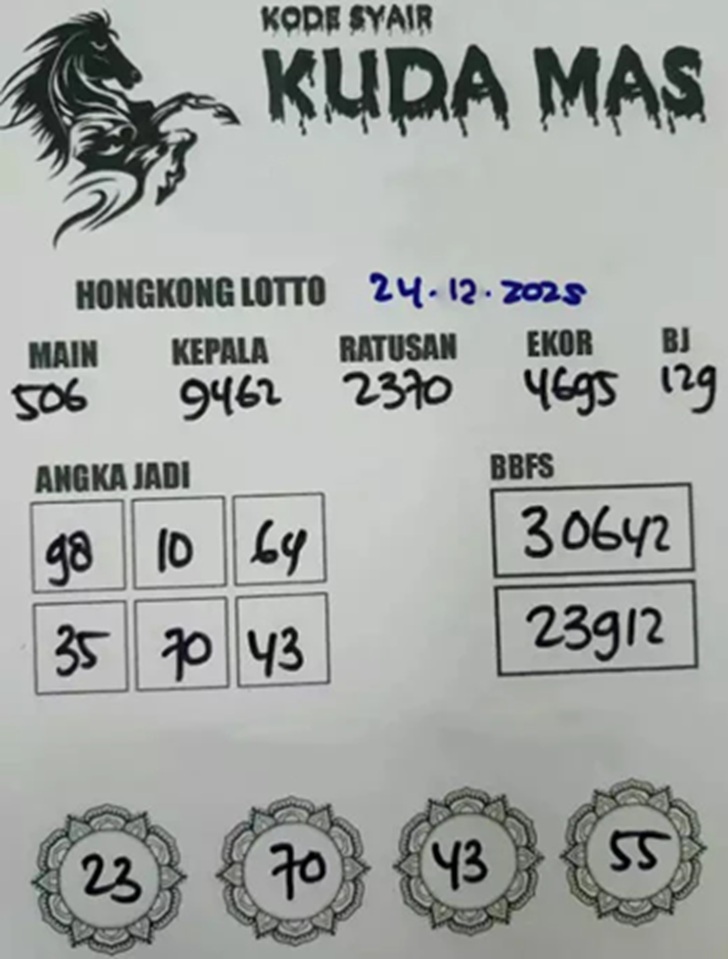 KODE SYAIR
KUDA MAS
HONGKONG LOTTO 24.12.2025
MAIN KEPALA RATUSAN EKOR BJ
506 9462 2370 4695 129
ANGKA JADI BBFS
98 10 64 30642
35 70 43 23912
23 70 43 55